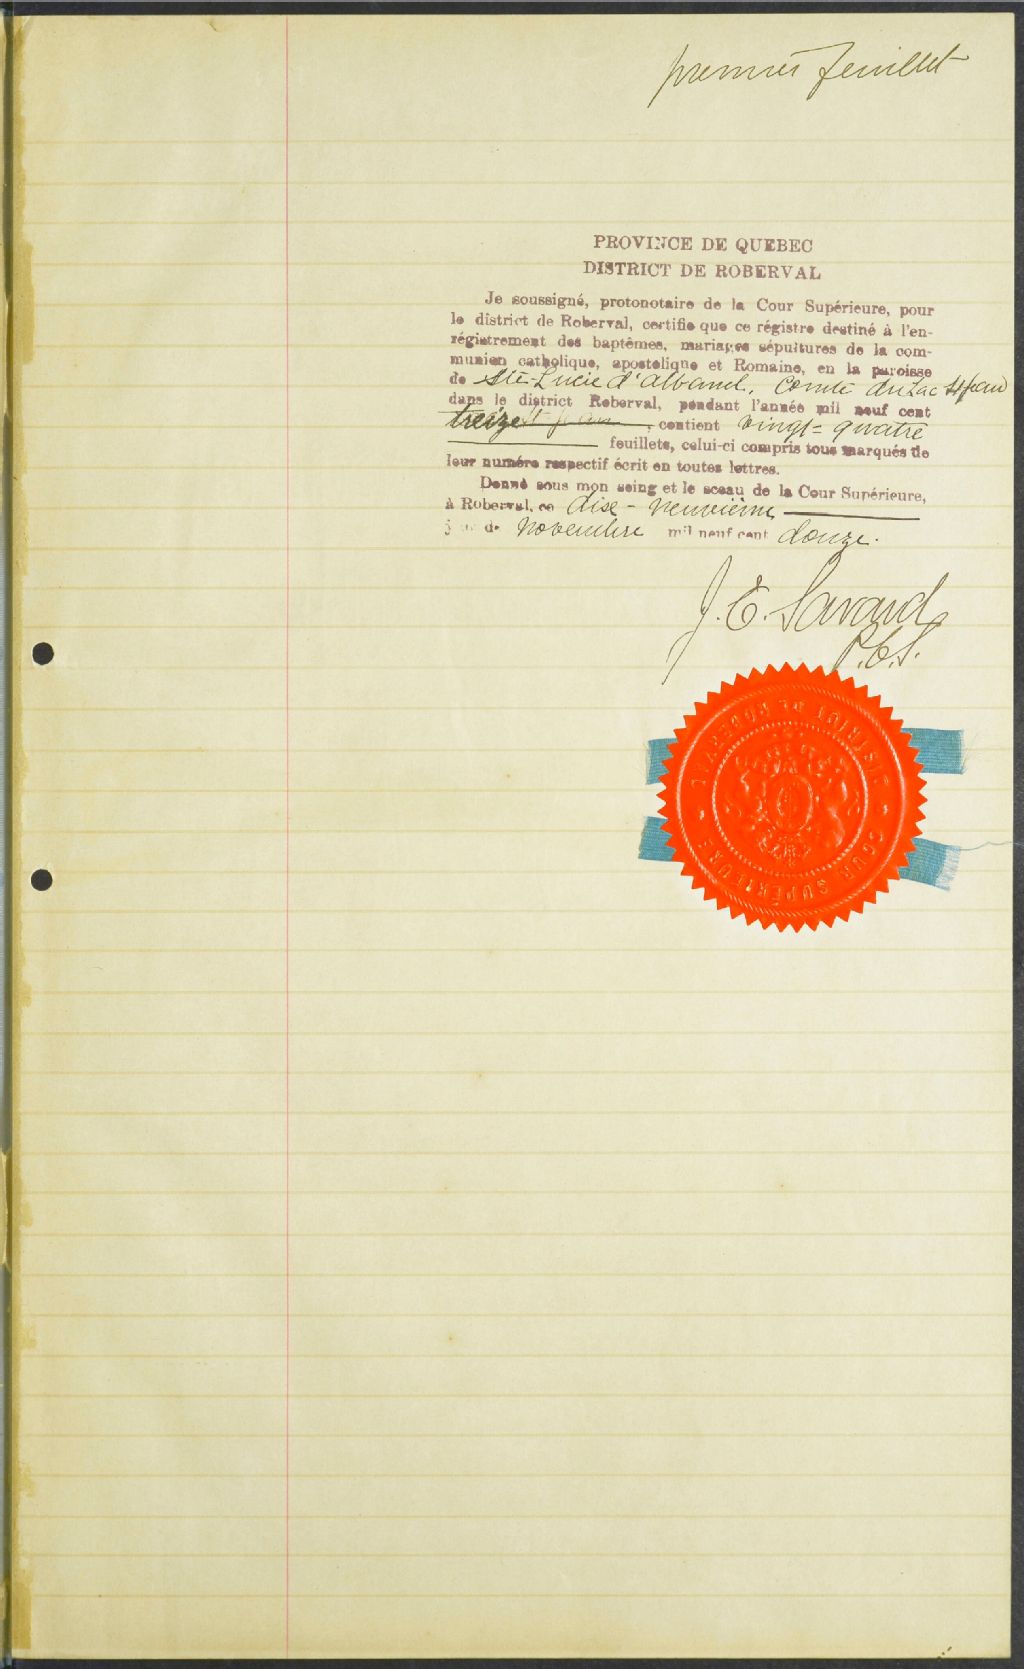 premier feuillet
PROVINCE DE QUEBEC
DISTRICT DE ROBERVAL
Je soussigné, protonotaire de la Cour Supérieure, pour
le district de Roberval, certifie que ce régistre destiné à l'en-
régistrement des baptêmes, mariages sépultures de la com-
munion catholique, apostolique et Romaine, en la paroisse
de Ste-Lucie d'Albanel, Comté du Lac St Jean
dans le district Roberval, pendant l'année mil neuf cent
treize, contient vingt=quatre
feuillets, celui-ci compris tous marqués de
leur numéro respectif écrit en toutes lettres.
Donné sous mon seing et le sceau de la Cour Supérieure,
à Roberval, ce dise-neuvième
jour de Novembre mil neuf cent douze.
J. E. Savard
P.C.S.
DISTRICT DE ROBERVAL
COUR SUPÉRIEURE